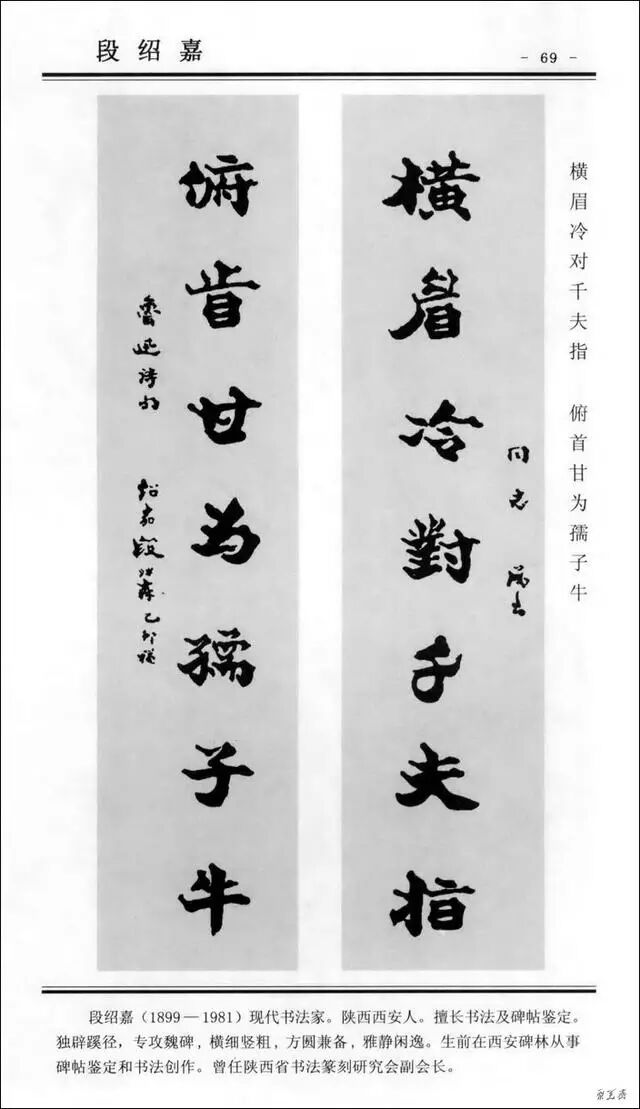 段绍嘉
- 69 -
横眉冷对千夫指 俯首甘为孺子牛
同志 属书
橫眉冷對千夫指
俯首甘为孺子牛
鲁迅诗句
绍嘉段
段绍嘉(1899—1981)现代书法家。陕西西安人。擅长书法及碑帖鉴定。
独辟蹊径,专攻魏碑,横细竖粗,方圆兼备,雅静闲逸。生前在西安碑林从事
碑帖鉴定和书法创作。曾任陕西省书法篆刻研究会副会长。